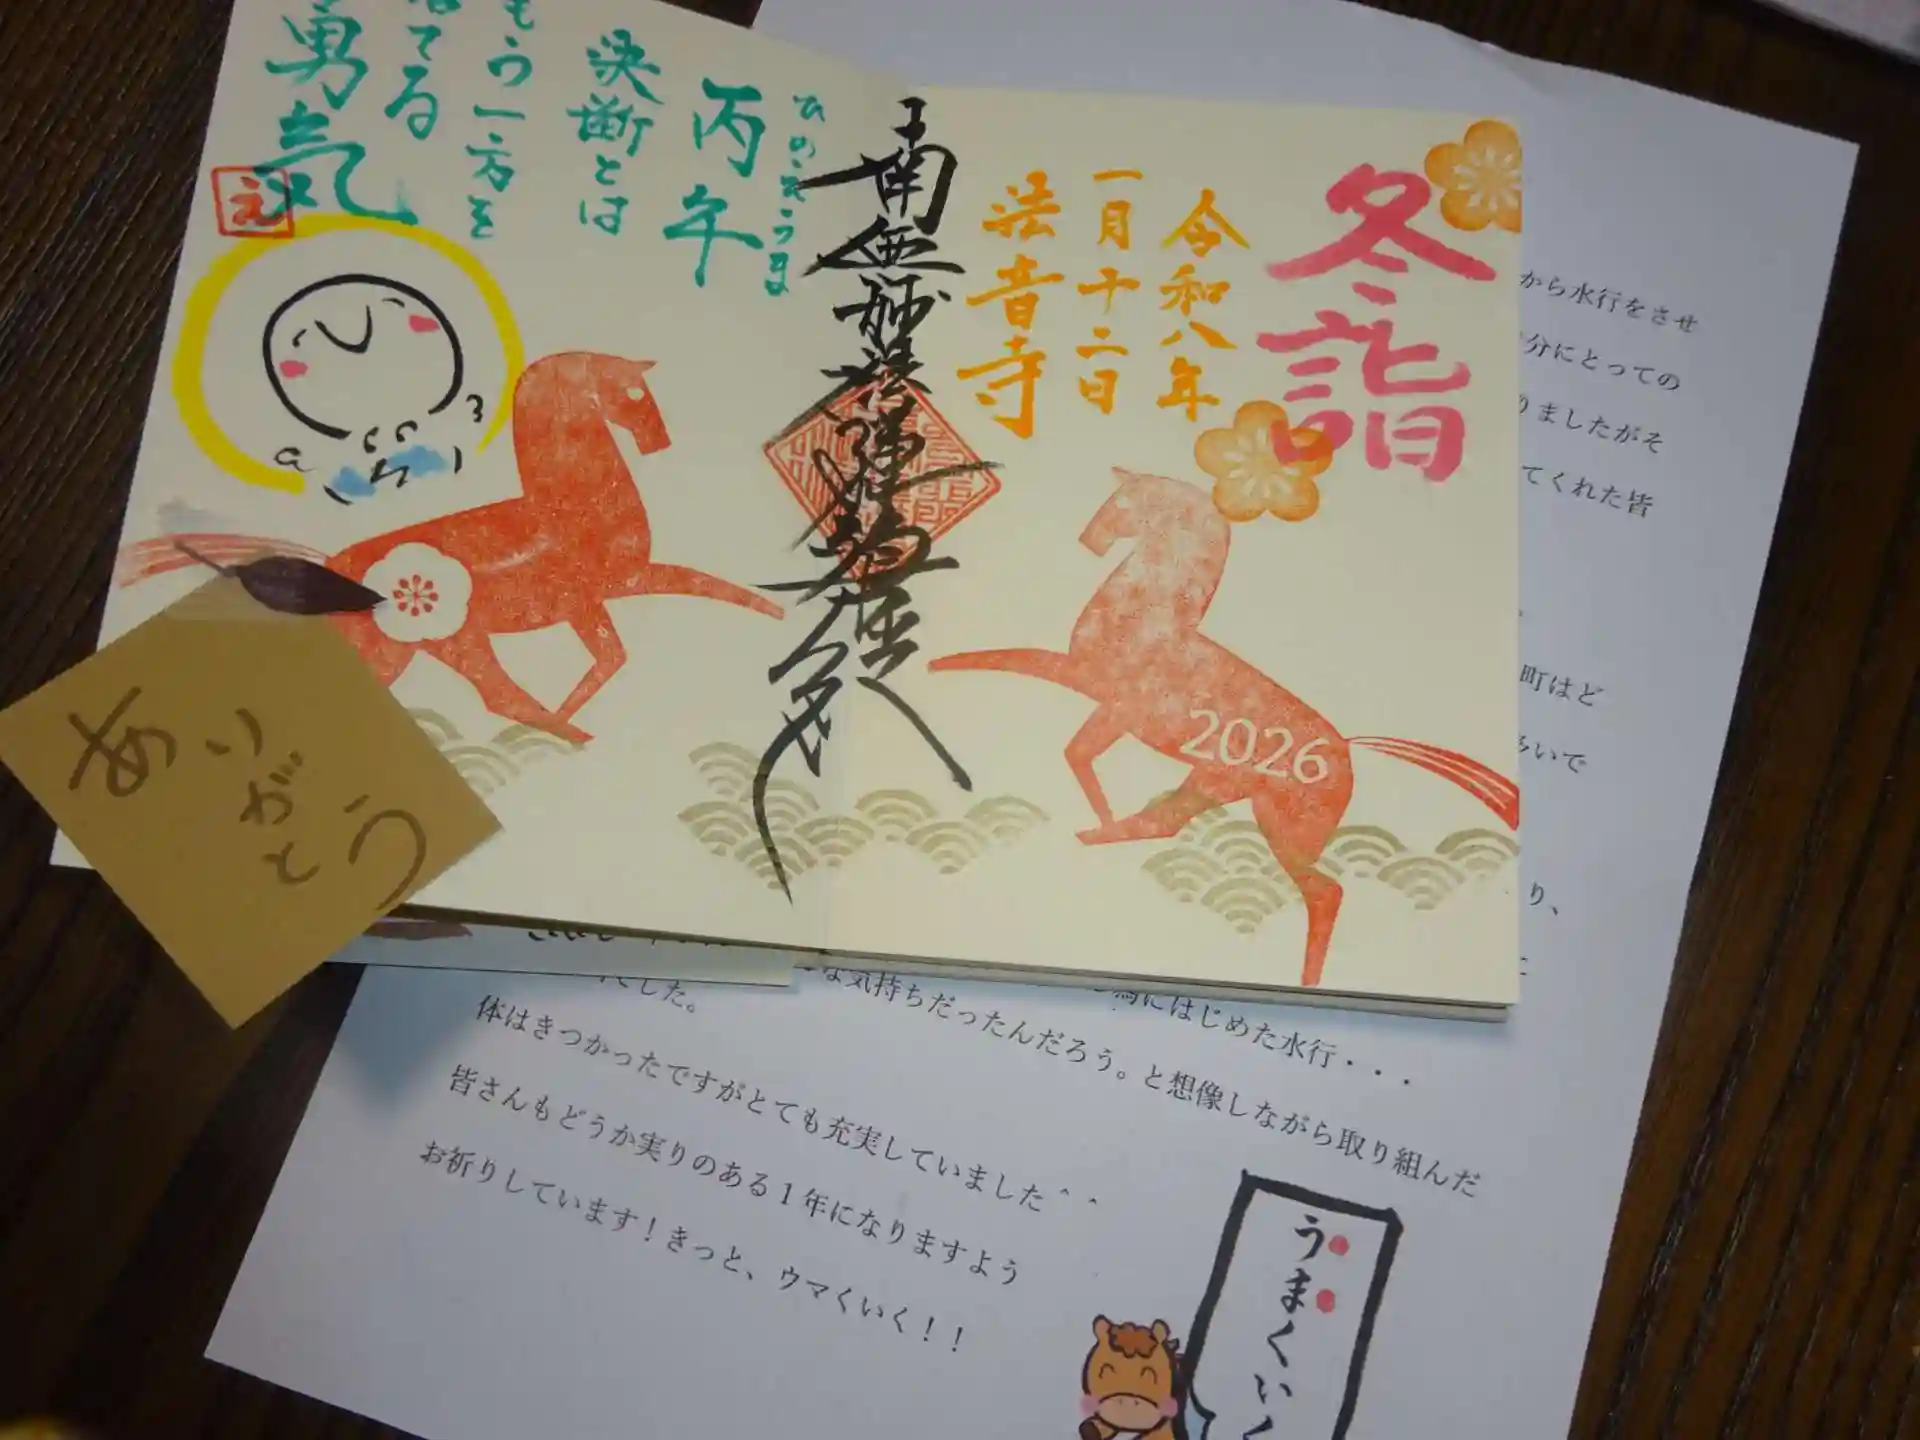 冬詣
令和八年
一月十二日
法音寺
南無妙法蓮華経
ひのえうま
丙午
決断とは
もう一方を
捨てる
勇気
2026
ありがとう
から水行をさせ
分にとっての
りましたがそ
てくれた皆
町はど
いで
り、
でした。
な気持ちだったんだろう。と想像しながら取り組んだ
為にはじめた水行・・・
体はきつかったですがとても充実していました＾＾
皆さんもどうか実りのある１年になりますよう
お祈りしています！きっと、ウマくいく！！
うまくいく